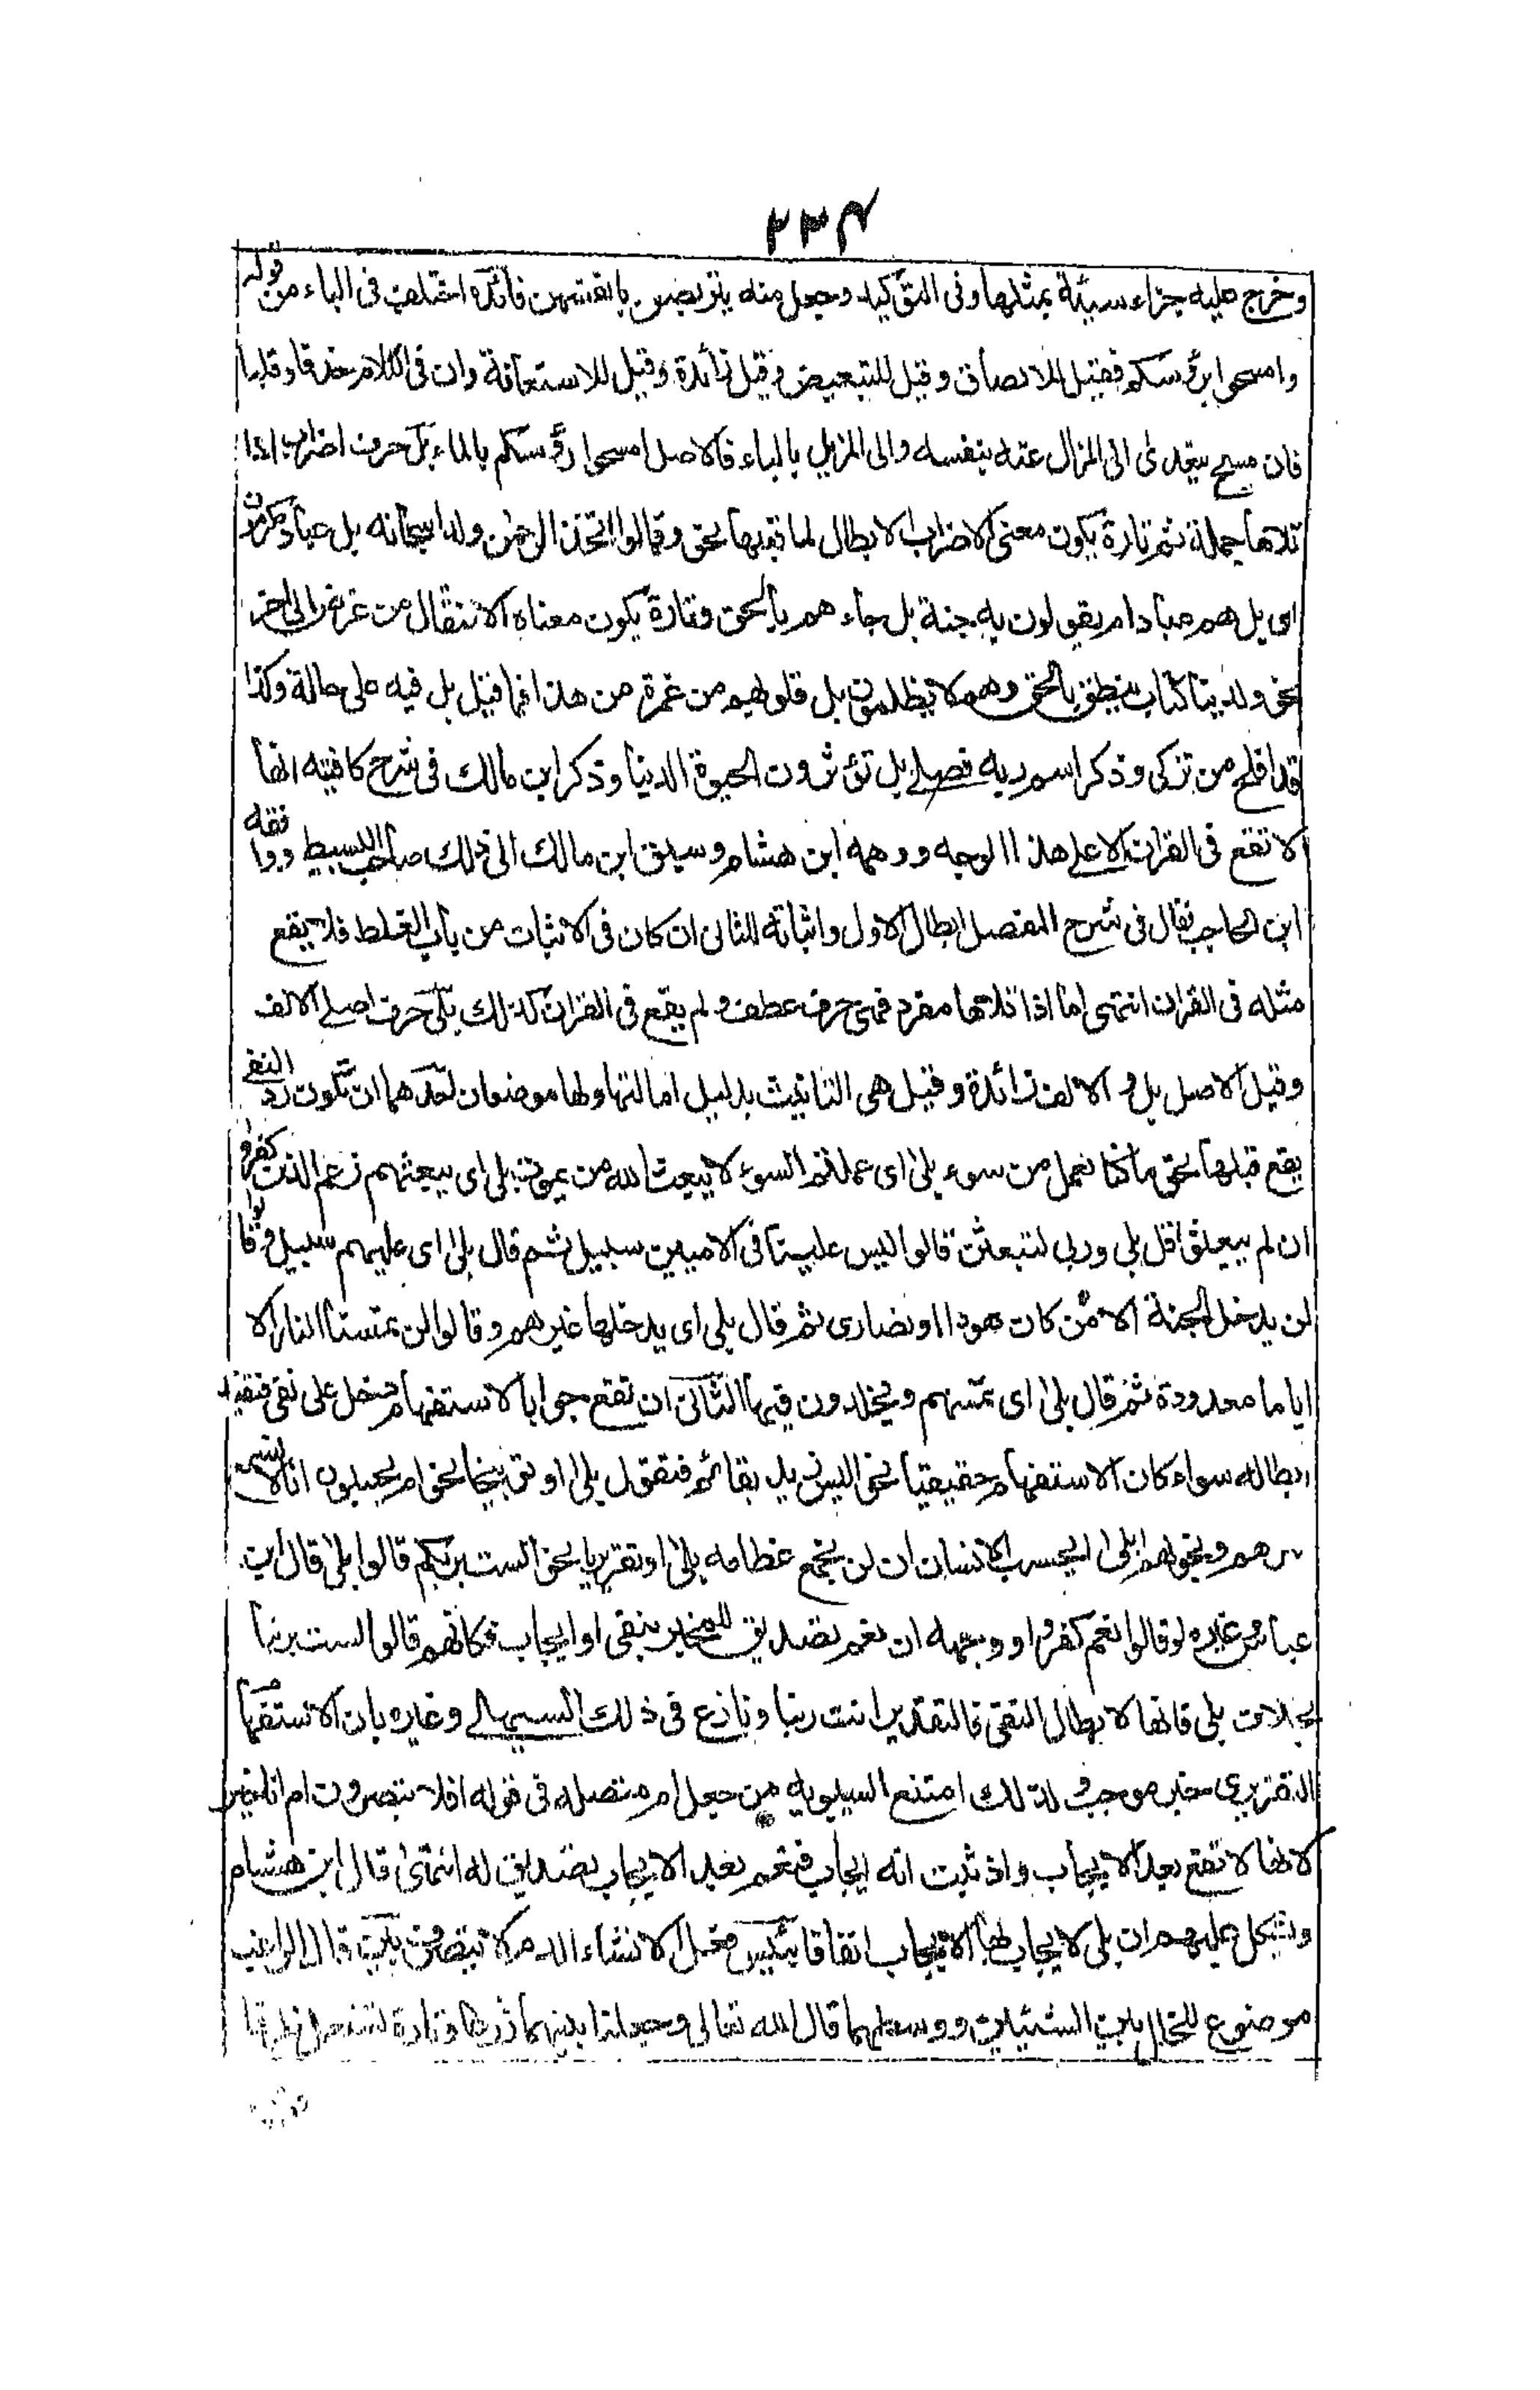 ٢٣٤
وخرج عليه جزاء سيئة بمثلها وفى التؤكيد وجعل منه يتربصن بانفسهن فائدة اختلف فى الباء من قوله
وامسحوا برؤسكم فقيل للالصاق وقيل للتبعيض وقيل زائدة وقيل للاستعانة وان فى الكلام حذفا وقلبا
فان مسح يتعدى الى المزال عنه بنفسه والى المزيل بالباء فالاصل امسحوا رؤسكم بالماء بل حرف اضراب اذا
تلاها جملة ثم تارة يكون معنى الاضراب الابطال لما قبلها نحو وقالوا اتخذ الرحمن ولدا سبحانه بل عباد مكرمون
اى بل هم عباد ام يقولون به جنة بل جاءهم بالحق وتارة يكون معناه الانتقال من غرض الى اخر
نحو ولدينا كتاب ينطق بالحق وهم لا يظلمون بل قلوبهم من غمرة من هذا فما قبل بل فيه على حالة وكذا
قد افلح من تزكى وذكر اسم ربه فصلے بل تؤثرون الحيوة الدنيا وذكر ابن مالك فى شرح كافيته انها
لا تقع فى القران الا على هذا الوجه ووهمه ابن هشام وسبق ابن مالك الى ذلك صاحب البسيط ووافقه
ابن الحاجب فقال فى شرح المفصل ابطال الاول واثباته للثانى ان كان فى الاثبات من باب الغلط فلا يقع
مثله فى القران انتهى اما اذا تلاها مفرد فهى حرف عطف ولم يقع فى القران كذلك بلى حرف اصلے الالف
وقيل الاصل بل والالف زائدة وقيل هى التانيث بدليل امالتها ولها موضعان احدهما ان تكون رد النفى
يقع قبلها نحو ما كنا نعمل من سوء بلى اى عملتم السوء لا يبعث الله من يموت بلى اى يبعثهم زعم الذين كفروا
ان لم يبعثوا قل بلى وربى لتبعثن قالوا ليس علينا فى الاميين سبيل ثم قال بلى اى عليهم سبيل وقالوا
لن يدخل الجنة الا من كان هودا او نصارى ثم قال بلى اى يدخلها غيرهم وقالوا لن تمسنا النار الا
اياما معدودة ثم قال بلى اى تمسهم ويخلدون فيها الثانى ان تقع جوابا لاستفهام دخل على نفى فتفيد
ابطاله سواء كان الاستفهام حقيقيا نحو اليس زيد بقائم فتقول بلى او توبيخا نحو ام يحسبون انا لا نسمع
سرهم ونجوهم بلى ايحسب الانسان ان لن نجمع عظامه بلى او تقريريا نحو الست بربكم قالوا بلى قال ابن
عباس وغيره لو قالوا نعم كفروا ووجهه ان نعم تصديق للمخبر بنفى او ايجاب فكانهم قالوا لست بربنا
بخلاف بلى فانها لابطال النفى فالتقدير انت ربنا ونازع فى ذلك السهيلے وغيره بان الاستفهام
التقريرى خبر موجب ولذلك امتنع السيبويه من جعل ام متصله فى قوله افلا تبصرون ام انا خير
لانها لا تقع بعد الايجاب واذ ثبت انه ايجاب فنعم بعد الايجاب تصديق له انتهى قال ابن هشام
ويشكل عليهم ان بلى لا يجاب بها الايجاب اتفاقا بئس فعل لانشاء الذم لا يتصرف بين قال الراغب
موضوع للخلل بين الشيئين ووسطهما قال الله تعالى وجعلنا بينهما زرعا وتارة تستعمل ظرفا